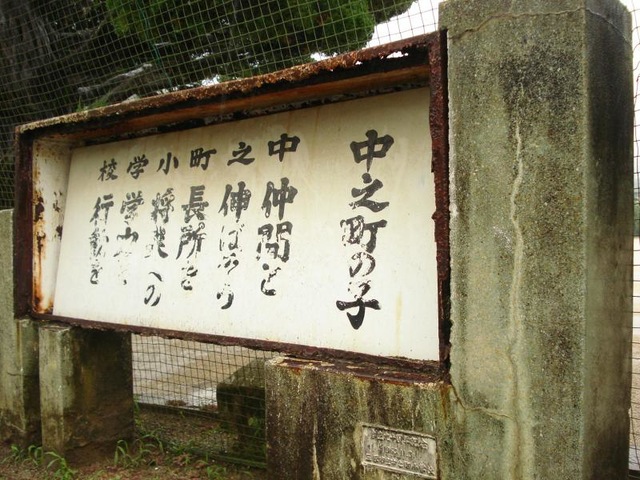 中之町の子
中 仲間と
之 伸ばそう
町 長所を
小 将来への
学 学力
校 行動を